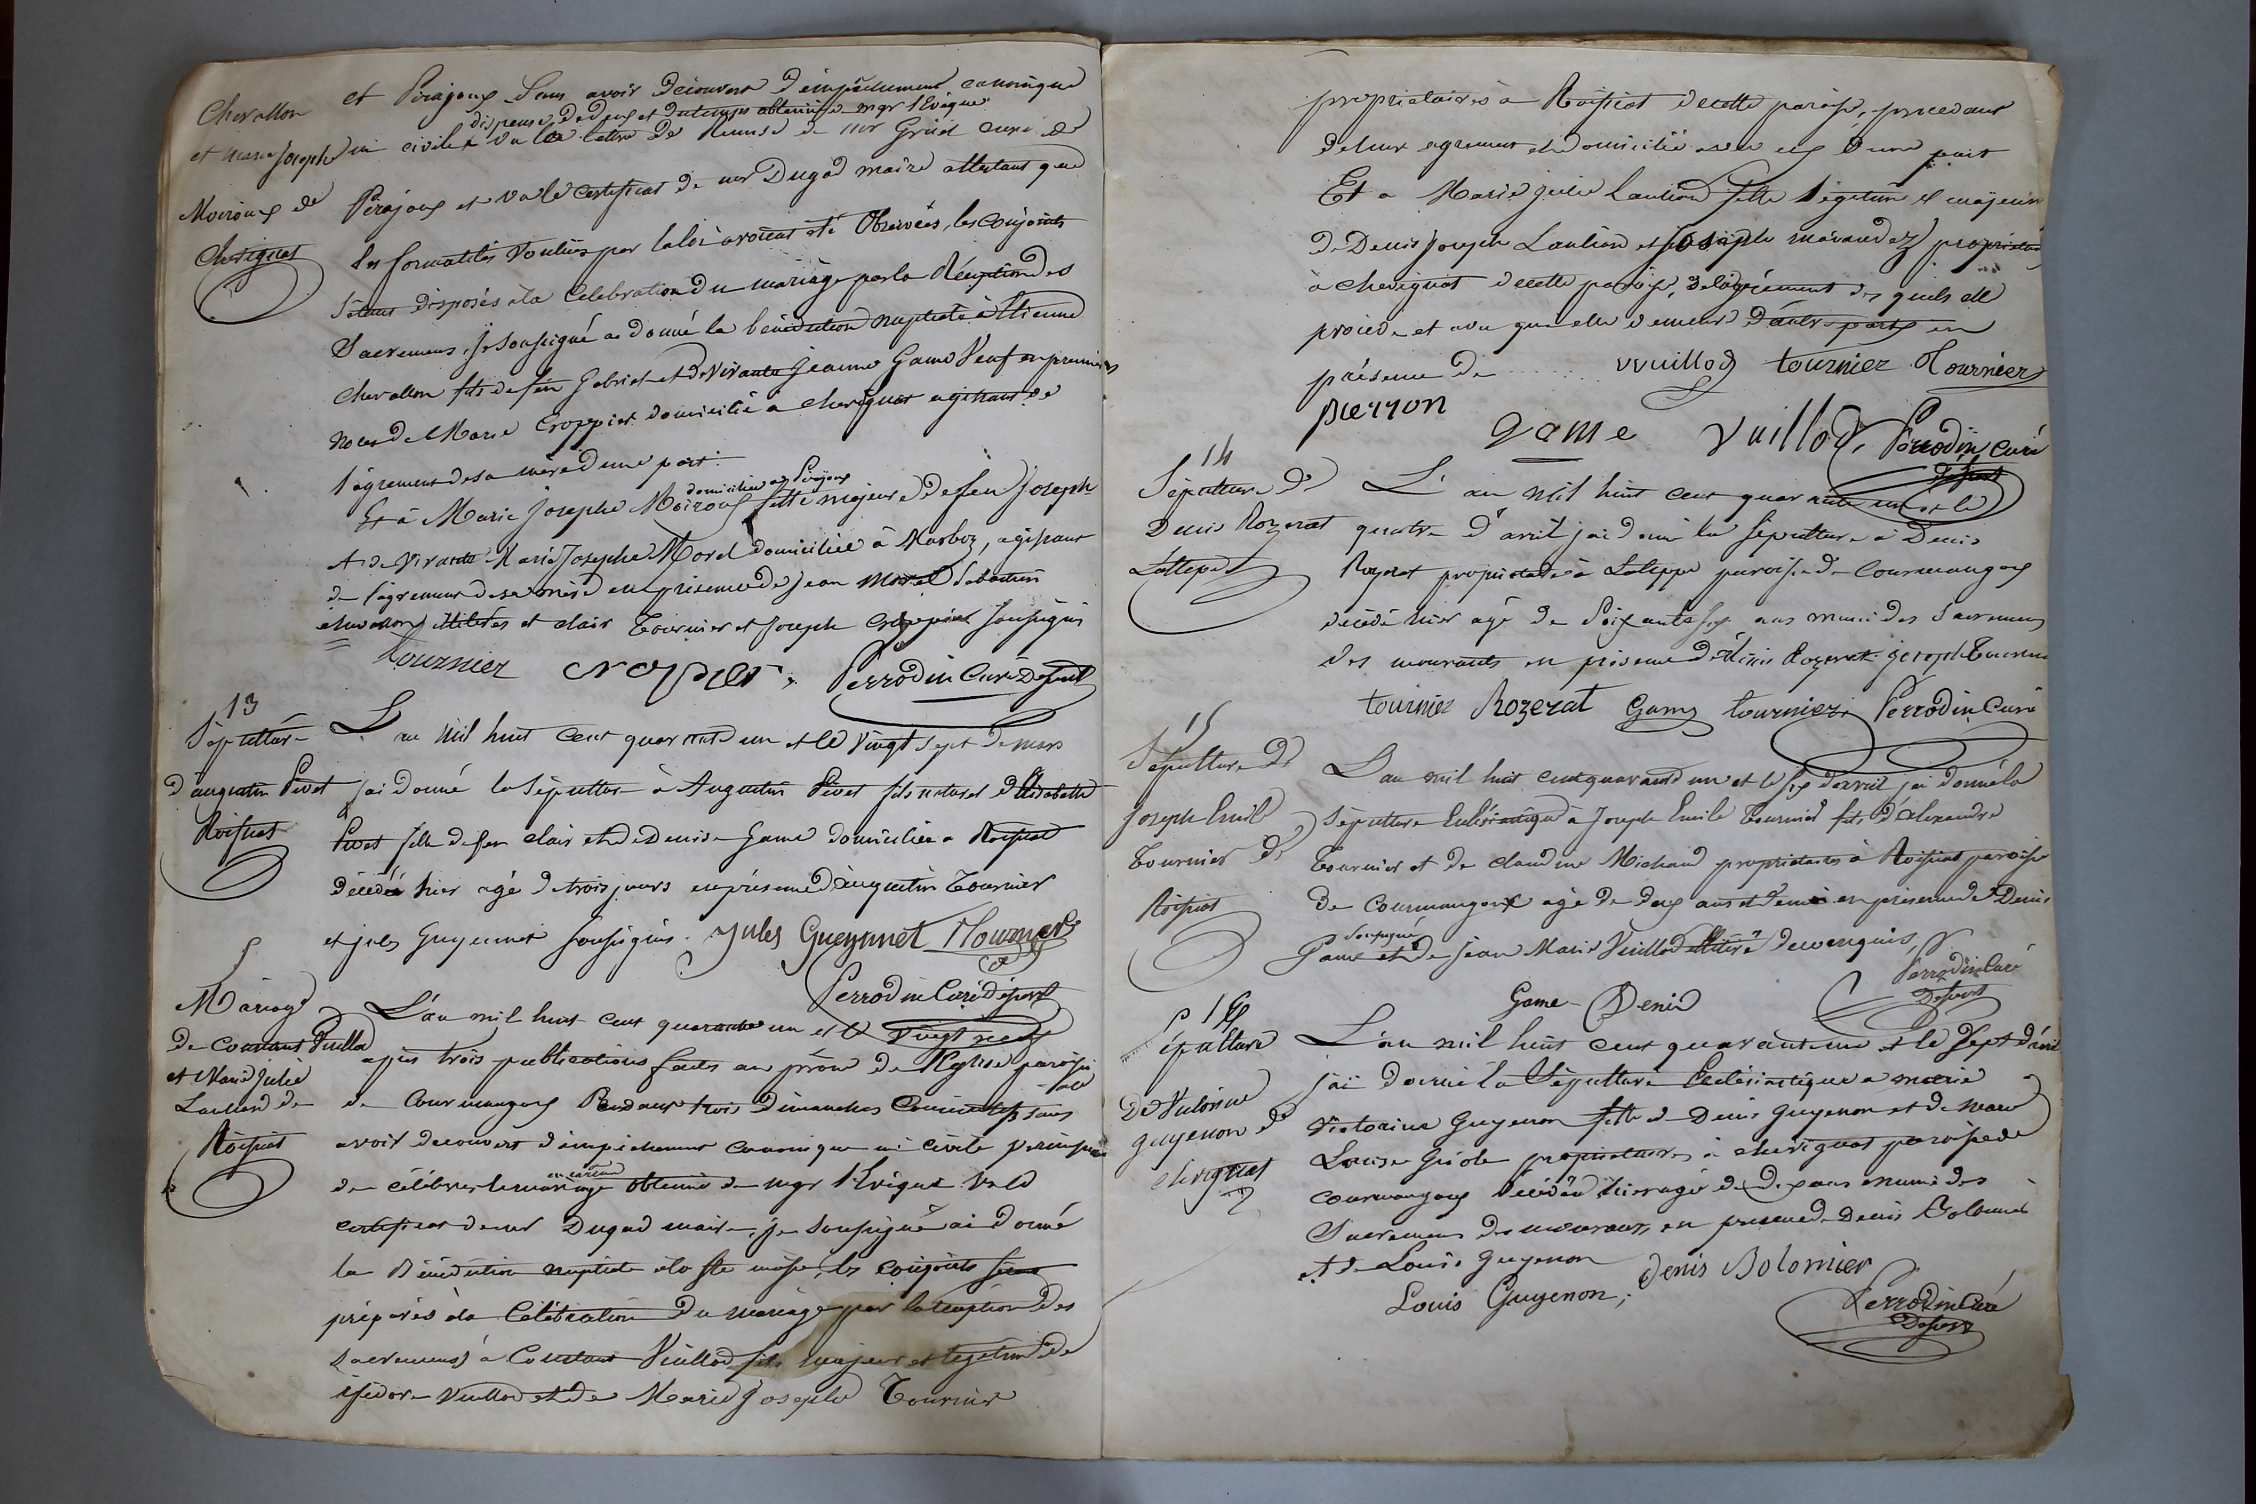 Chevallon
et marie Joseph
Moiroux de
Chevignat
et Pirajoux sans avoir découvert d'empêchement canonique
dispense de deux et du temps obtenue mgr l'Evêque
ni civil vu la lettre de remise de mr curé de
Pirajoux et vu le certificat de mr Dugad maire attestant que
les formalités voulues par la loi avoient été observées, les conjoints
s'étant disposés à la célébration du mariage par la Réception des
Sacremens, je soussigné ai donné la bénédiction nuptiale à Etienne
Chevallon fils de feu Gabriel et de vivante Jeanne Game Veuf en premieres
noces de Marie Croppier domicilié a chevignat agissant de
l'agrement de sa mère d'une part.
domiciliée a Pirajoux
Et à Marie Josephe Moiroux fille majeure de feu Joseph
et de vivante Marie Josephe Morel domiciliée à Marboz, agissant
de l'agrement de sa mère en présence de Jean Morel Sébastien
chevallon illitérés et clair Tournier et Joseph Croppier soussignés
tournier croppier Perrodin Curé Desserv
13
Sépulture
d'augustin Pivet
Roissiat
L'an mil huit cent quarante un et le vingt sept de mars
j'ai donné la sépulture à Augustin Pivet fils naturel d'Elisabeth
Pivet fille de feu clair et de Denise Game domiciliée a Roissiat
décédé hier agé de trois jours en présence d'augustin Tournier
et jules Guyennet soussignés. Jules Gueynnet Tournier
Perrodin Curé desserv
5
Mariage
de Constant Vuillod
et Marie Julie
Laulion de
Roissiat
L'an mil huit cent quarante un et le vingt neuf
apres trois publications faites au prône de l'église paroissi
ale
de Courmangoux Pendant trois dimanches consécutifs sans
avoir découvert d'empêchement canonique ni civil permission
en carême
de célébrer le mariage obtenue de mgr l'Evêque vu le
certificat de mr Dugad maire, je soussigné ai donné
la Bénédiction nuptiale à la ste messe, les conjoints
préparés à la célébration du mariage par la réception des
sacremens) à Constant Vuillod fils majeur et légitime de
isidore Vuillod et de Marie Josephe Tournier
propriétaires à Roissiat de cette paroisse, procedant
de leur agrement et domicilié avec eux d'une part
Et a Marie julie Laulion fille légitime et majeure
de Denis Joseph Laulion et Josephe propriétaires
à chevignat de cette paroisse, de l'agrément des quels elle
procède et avec qui elle demeure d'autre part en
présence de ...... vvuillod tournier Tournier
pierron
game vuillod Perrodin curé
desserv
14
Sépulture de
Denis Rozerat
L'an mil huit cent quarante un et le
quatre d'avril j'ai donné la sépulture à Denis
Rozerat propriétaire à paroisse de Courmangoux
décédé hier agé de soixante six ans muni des sacremens
des mourants en présence de Rozerat joseph Tournier
tournier Rozerat Game tournier Perrodin Curé
15
Sépulture de
Joseph Emile
Tournier de
Roissiat
L'an mil huit cent quarante un et le six d'avril j'ai donné la
sépulture Ecclésiastique à Joseph Emile Tournier fils d'alexandre
Tournier et de claudine Michaud propriétaires à Roissiat paroisse
de Courmangoux agé de deux ans et demi en présence de Denis
soussigné
Game et de Jean Marie Vuillod illitéré de ce requis
Game Denis
Perrodin Curé
Desserv
16
Sépulture
De Victorine
guyenon de
chevignat
L'an mil huit cent quarante un et le sept d'avril
j'ai donné la Sépulture Ecclésiastique a marie
Victorine Guyenon fille de Denis Guyenon et de marie
Louise propriétaires à chevignat paroisse de
courmangoux décédée hier agée de dix ans munie des
Sacremens des mourants en présence de Denis Bolomier
et de Louis guyenon
Louis Guyenon, denis Bolomier
Perrodin Curé
Desserv